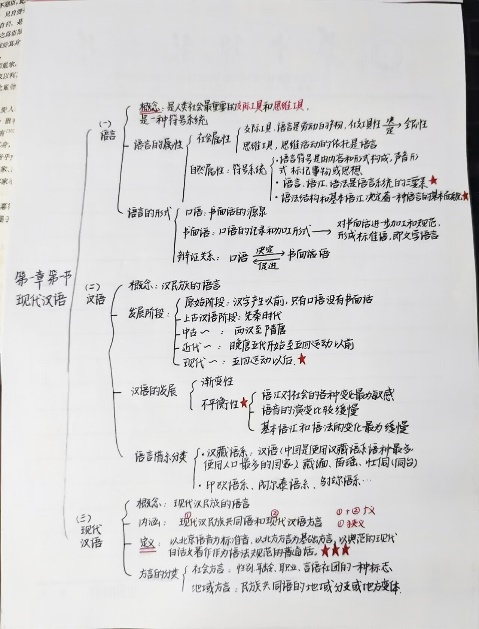 第一章第一节
现代汉语
(一)
语言
概念：是人类社会最重要的交际工具和思维工具，
是一种符号系统
语言的属性
社会属性
交际工具：语言是劳动
决定
全民性
思维工具，思维活动的依托是语言
自然属性：符号系统
·语音符号是由内容和形式构成，声音形
式标记事物或思想
·语音、语汇、语法是语言系统的三要素★
·语法结构和基本语汇决定着一种语言的基本面貌★
语言的形式
口语：书面语的源泉
书面语：口语的记录和加工形式
对书面语进一步加工和规范，
形成标准语，即文学语言
辩证关系：口语
决定
促进
书面语语
(二)
汉语
概念：汉民族的语言
发展阶段：
原始阶段：汉字产生以前，只有口语没有书面语
上古汉语阶段：先秦时代
中古～：两汉至隋唐
近代～：晚唐五代开始至五四运动以前
现代～：五四运动以后.★
汉语的发展
渐变性
不平衡性★
语汇对社会的各种变化最为敏感
语音的演变比较缓慢
基本语汇和语法的变化最为缓慢
语言谱系分类
·汉藏语系、汉语(中国是使用汉藏语系语种最多、
使用人口最多的国家)藏缅、苗瑶、壮侗(侗台)
·印欧语系、阿尔泰语系、
(三)
现代
汉语
概念：现代汉民族的语言
内涵：现代汉民族共同语和现代汉语方言
①
②
①+②广义
①狭义
定义：以北京语音为标准音、以北方方言为基础方言、以典范的现代
白话文著作为语法规范的普通话。★★★
方言的分类
社会方言：性别、年龄、职业、言语社团的一种标志
地域方言：民族共同语的地域分支或地方变体.